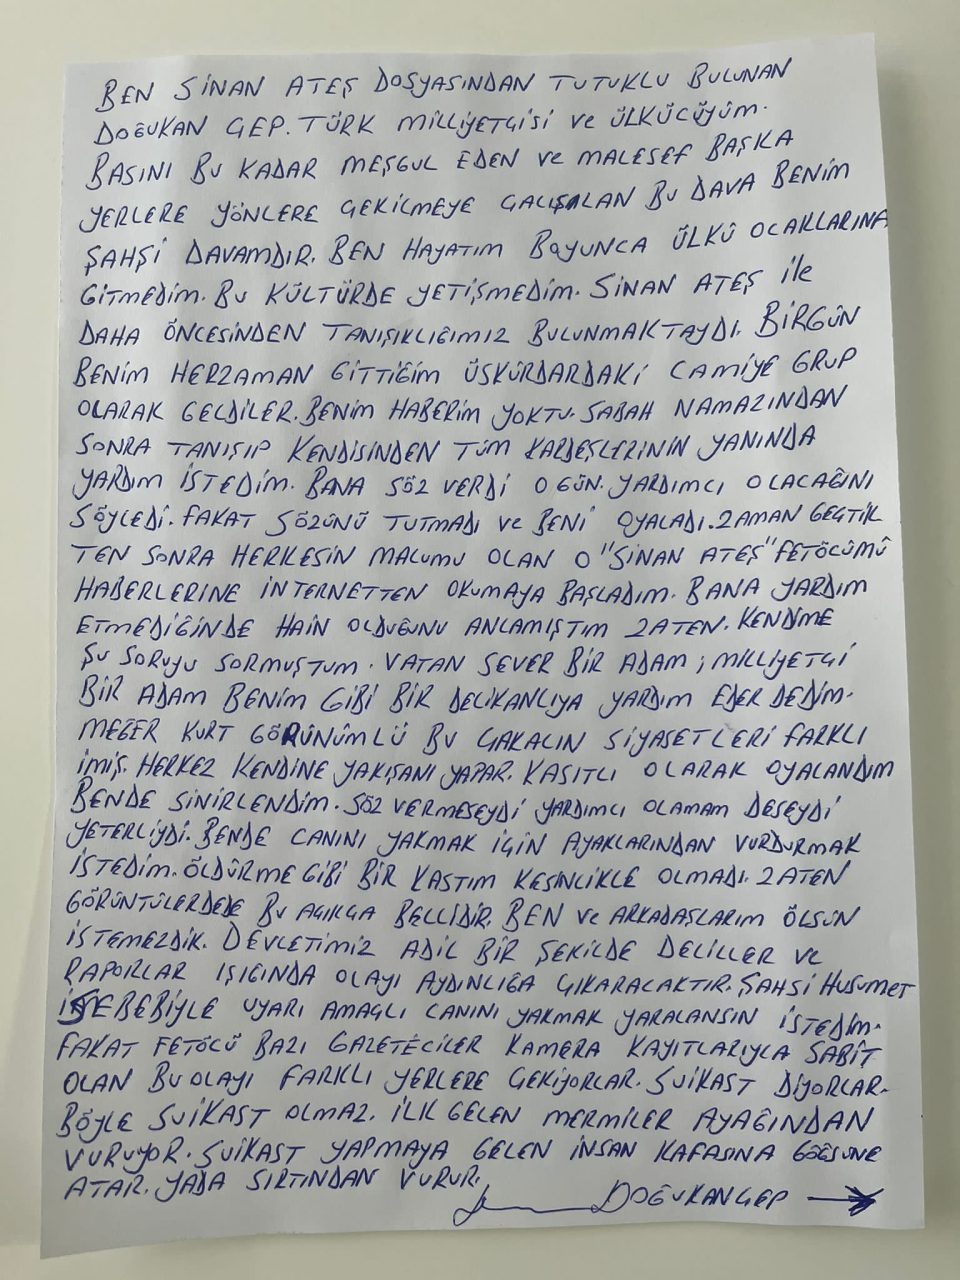 BEN SİNAN ATEŞ DOSYASINDAN TUTUKLU BULUNAN
DOĞUKAN ÇEP. TÜRK MİLLİYETÇİSİ ve ÜLKÜCÜYÜM.
BASINI BU KADAR MEŞGUL EDEN ve MALESEF BAŞKA
YERLERE YÖNLERE ÇEKİLMEYE ÇALIŞILAN BU DAVA BENİM
ŞAHSİ DAVAMDIR. BEN HAYATIM BOYUNCA ÜLKÜ OCAKLARINA
GİTMEDİM. BU KÜLTÜRDE YETİŞMEDİM. SİNAN ATEŞ İLE
DAHA ÖNCESİNDEN TANIŞIKLIĞIMIZ BULUNMAKTAYDI. BİRGÜN
BENİM HERZAMAN GİTTİĞİM ÜSKÜRDARDAKİ CAMİYE GRUP
OLARAK GELDİLER. BENİM HABERİM YOKTU. SABAH NAMAZINDAN
SONRA TANIŞIP KENDİSİNDEN TÜM KARDEŞLERİNİN YANINDA
YARDIM İSTEDİM. BANA SÖZ VERDİ O GÜN. YARDIMCI OLACAĞINI
SÖYLEDİ. FAKAT SÖZÜNÜ TUTMADI ve BENİ OYALADI. ZAMAN GEÇTİK
TEN SONRA HERKESİN MALUMU OLAN O "SİNAN ATEŞ" FETÖCÜMÜ
HABERLERİNE İNTERNETTEN OKUMAYA BAŞLADIM. BANA YARDIM
ETMEDİĞİNDE HAİN OLDUĞUNU ANLAMIŞTIM ZATEN. KENDİME
ŞU SORUYU SORMUŞTUM. VATAN SEVER BİR ADAM; MİLLİYETÇİ
BİR ADAM BENİM GİBİ BİR DELİKANLIYA YARDIM EDER DEDİM.
MEĞER KURT GÖRÜNÜMLÜ BU ÇAKALIN SİYASETLERİ FARKLI
İMİŞ. HERKEZ KENDİNE YAKIŞANI YAPAR. KASITLI OLARAK OYALANDIM
BENDE SİNİRLENDİM. SÖZ VERMESEYDİ YARDIMCI OLAMAM DESEYDİ
YETERLİYDİ. BENDE CANINI YAKMAK İÇİN AYAKLARINDAN VURDURMAK
İSTEDİM. ÖLDÜRME GİBİ BİR KASTIM KESİNLİKLE OLMADI. ZATEN
GÖRÜNTÜLERDEDE BU AÇIKÇA BELLİDİR. BEN ve ARKADAŞLARIM ÖLSÜN
İSTEMEZDİK. DEVLETİMİZ ADİL BİR ŞEKİLDE DELİLLER ve
RAPORLAR IŞIĞINDA OLAYI AYDINLIĞA ÇIKARACAKTIR. ŞAHSİ HUSUMET
SEBEBİYLE UYARI AMAÇLI CANINI YAKMAK YARALANSIN İSTEDİM.
FAKAT FETÖCÜ BAZI GAZETECİLER KAMERA KAYITLARIYLA SABİT
OLAN BU OLAYI FARKLI YERLERE ÇEKİYORLAR. SUİKAST DİYORLAR.
BÖYLE SUİKAST OLMAZ. İLK GELEN MERMİLER AYAĞINDAN
VURUYOR. SUİKAST YAPMAYA GELEN İNSAN KAFASINA GÖĞSÜNE
ATAR. YADA SIRTINDAN VURUR.
DOĞUKAN ÇEP